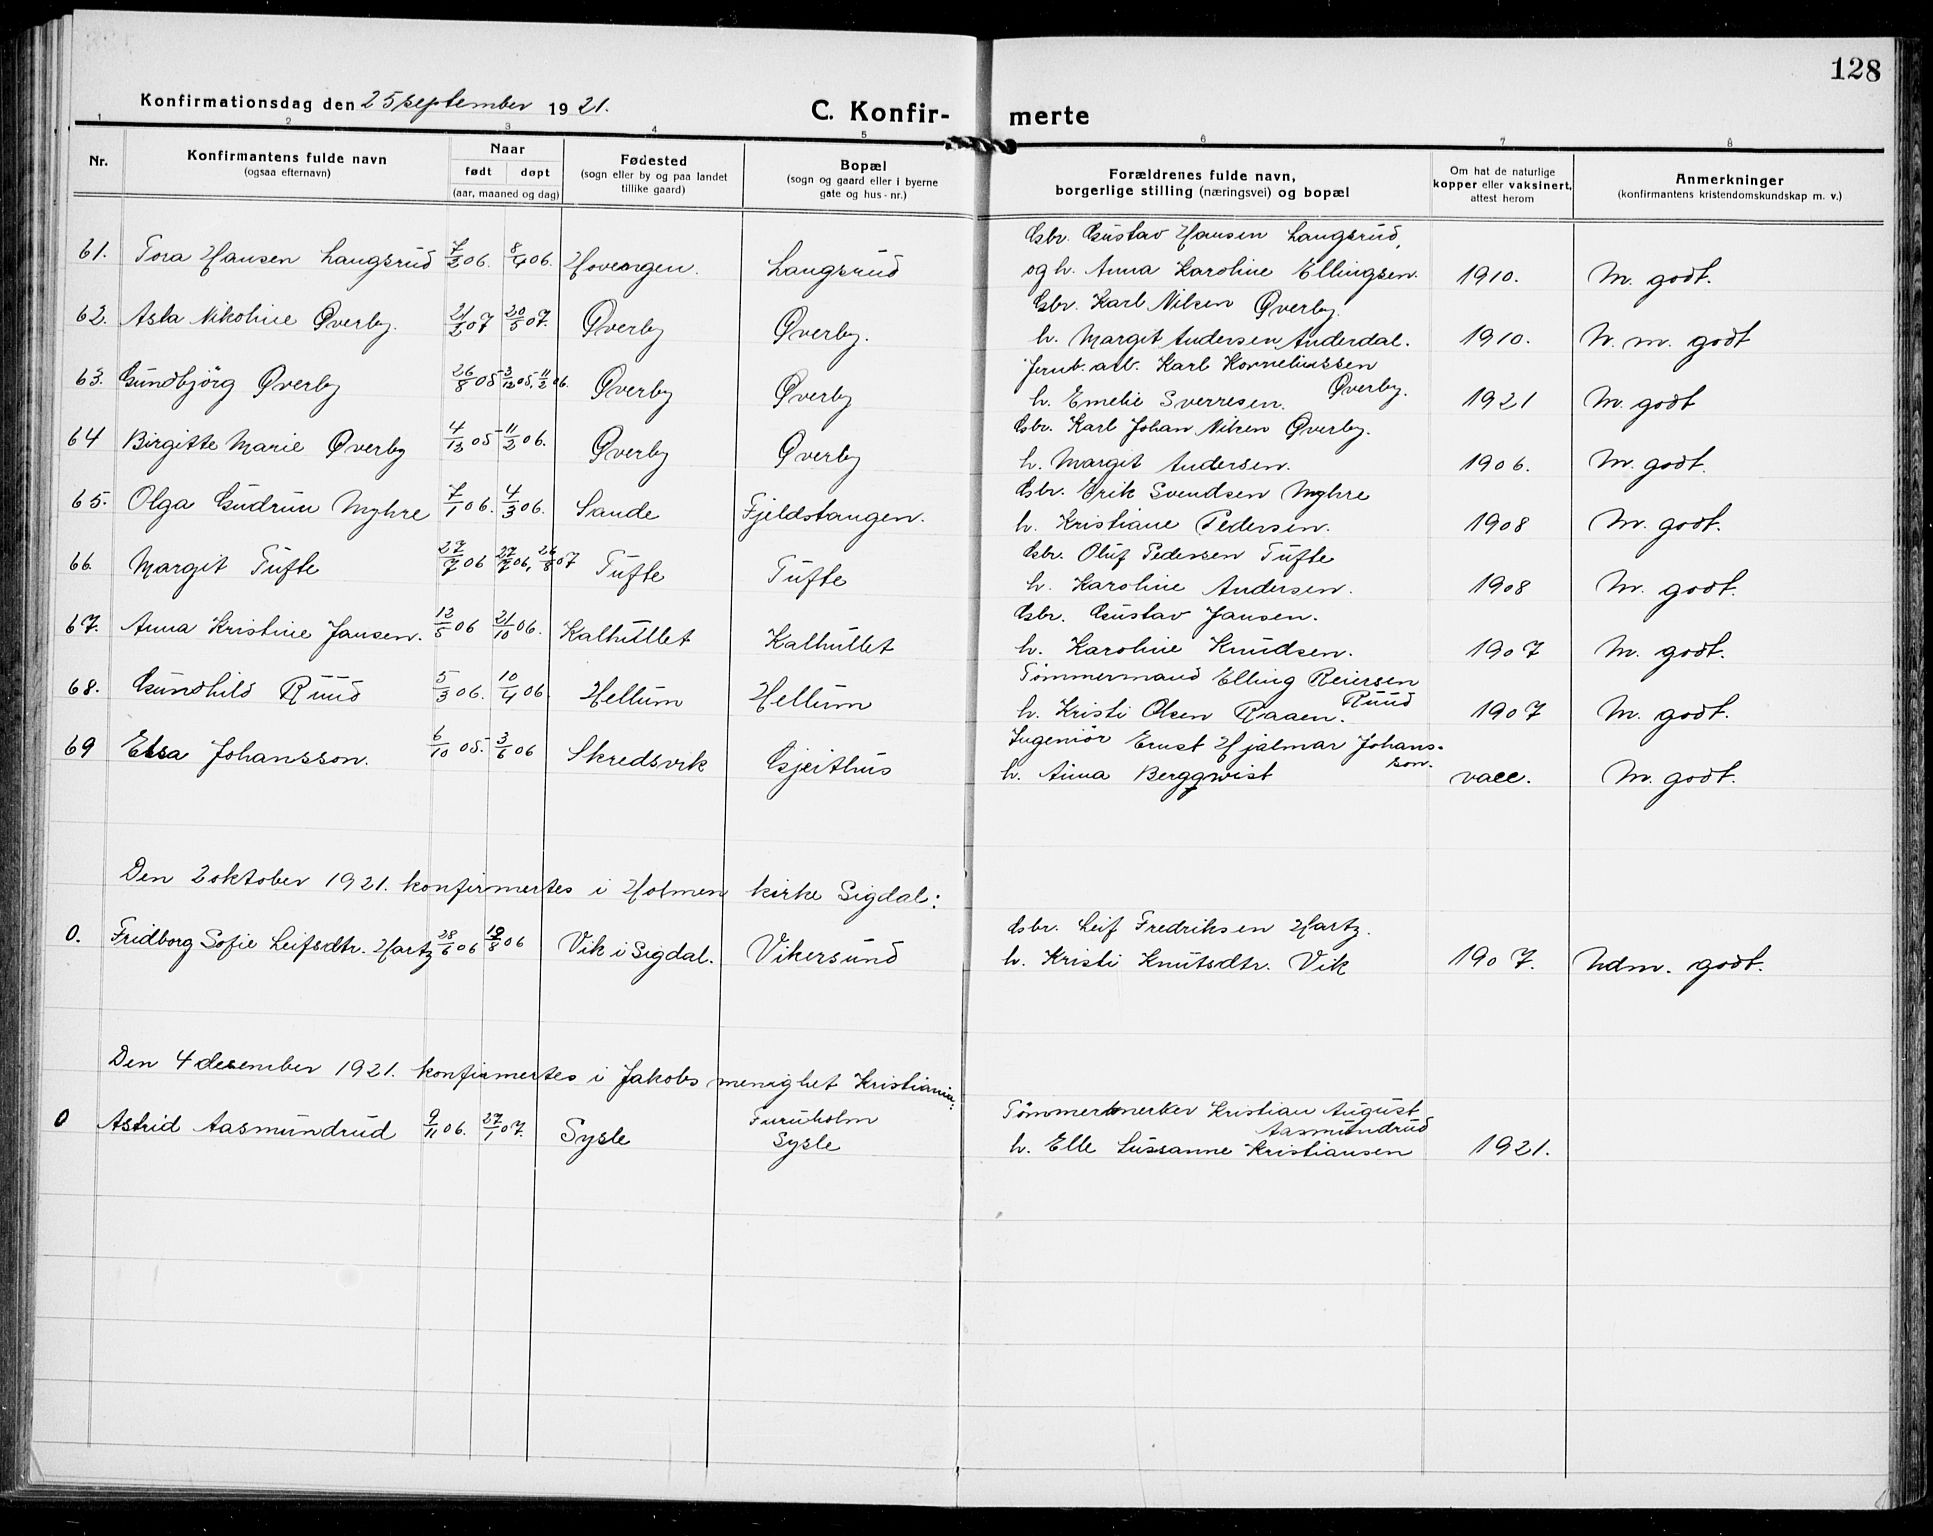 128
Konfirmationsdag den 25 september 1921. C. Konfir- merte
1 2 3 4 5 6 7 8
Nr. Konfirmantens fulde navn (ogsaa efternavn) Naar født døpt (aar, maaned og dag) Fødested (sogn eller by og paa landet tillike gaard) Bopæl (sogn og gaard eller i byerne gate og hus-nr.) Forældrenes fulde navn, borgerlige stilling (næringsvei) og bopæl Om hat de naturlige kopper eller vaksinert, attest herom Anmerkninger (konfirmantens kristendomskundskap m. v.)
Gbr. Gustav Hansen Langsrud,
61. Tora Hansen Langsrud 7/2 06. 8/4 06. Langsrud og h. Anna Karoline Ellingsen. 1910. M. godt.
Gbr. Karl Nilsen Øverby.
62. Asta Nikoline Øverby. 21/2 07 20/5 07. Øverby Øverby. h. Margit Andersen Anderdal. 1910. N. m. godt
Jernb. arb. Karl Korneliussen
63. Gundbjörg Øverby 26/8 05 3/12 05, 11/2 06. Øverby Øverby h. Emelie Sverresen. Øverby. 1921 M. godt
Gbr. Karl Johan Nilsen Øverby.
64 Birgitte Marie Øverby 4/12 05 11/2 06. Øverby Øverby h. Margit Andersen. 1906. M. godt.
Gbr. Erik Svendsen Myhre
65. Olga Gudrun Myhre 7/1 06. 4/3 06. Sande Fjeldstangen. h. Kristiane Pedersen. 1908 M. godt.
Gbr. Oluf Pedersen Tufte
66. Margit Tufte 27/7 06 27/7 06, 26/8 07 Tufte Tufte h. Karoline Andersen. 1908 M. godt.
Gbr. Gustav Jansen.
67. Anna Kristine Jansen. 12/5 06 21/10 06. Kalhullet Kalhullet h. Karoline Knudsen. 1907 M. godt.
Tömmermand Elling Reiersen
68. Gundhild Ruud 5/3 06. 10/4 06. Hellum Hellum h. Kristi Olsen Raaen. Ruud 1907 M. godt.
Ingeniör Ernst Hjalmar Johans-
69 Elsa Johansson. 6/10 05. 3/6 06 Skredsvik Gjeithus h. Anna Bergqwist son. vacc. M. godt.
Den 2 oktober 1921. konfirmertes i Holmen kirke Sigdal:
Gbr. Leif Fredriksen Hartz.
0. Fridborg Sofie Leifsdtr. Hartz 28/6 06 19/8 06 Vik i Sigdal. Vikersund h. Kristi Knutsdtr. Vik 1907. Udm. godt.
Den 4 desember 1921. konfirmertes i Jakobs menighet Kristiania:
Tömmermerker Kristian August
0 Astrid Aasmundrud 9/11 06. 27/1 07. Sysle Furuholm Sysle Aasmundrud
h. Elle Sussanne Kristiansen 1921.